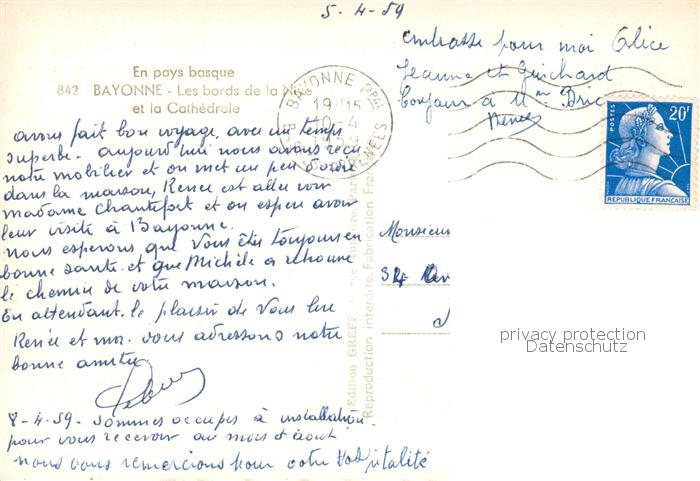 5-4-59
embrasse pour moi Alice
Jeanne et Guichard
bonjour à Mme Bric
Renée
En pays basque
842 BAYONNE - Les bords de la Nive
et la Cathédrale
BAYONNE PPAL
19H15
POSTES
20F
REPUBLIQUE FRANÇAISE
avons fait bon voyage, avec un temps
superbe. aujourd'hui nous avons reçu
notre mobilier et on met un peu d'ordre
dans la maison, Renée est allée voir
madame Chantefort et on espere avoir
leur visite à Bayonne.
nous esperons que vous êtes toujours en
bonne santé et que Michèle a retrouvé
le chemin de votre maison.
En attendant le plaisir de vous lire
Renée et moi vous adressons notre
bonne amitié
8-4-59. Sommes occupés à installation
pour vous recevoir au mois d'août
nous vous remercions pour votre hospitalité
Monsieur
34 Av
Edition GREFF
Reproduction interdite. Fabrication Fran
privacy protection
Datenschutz